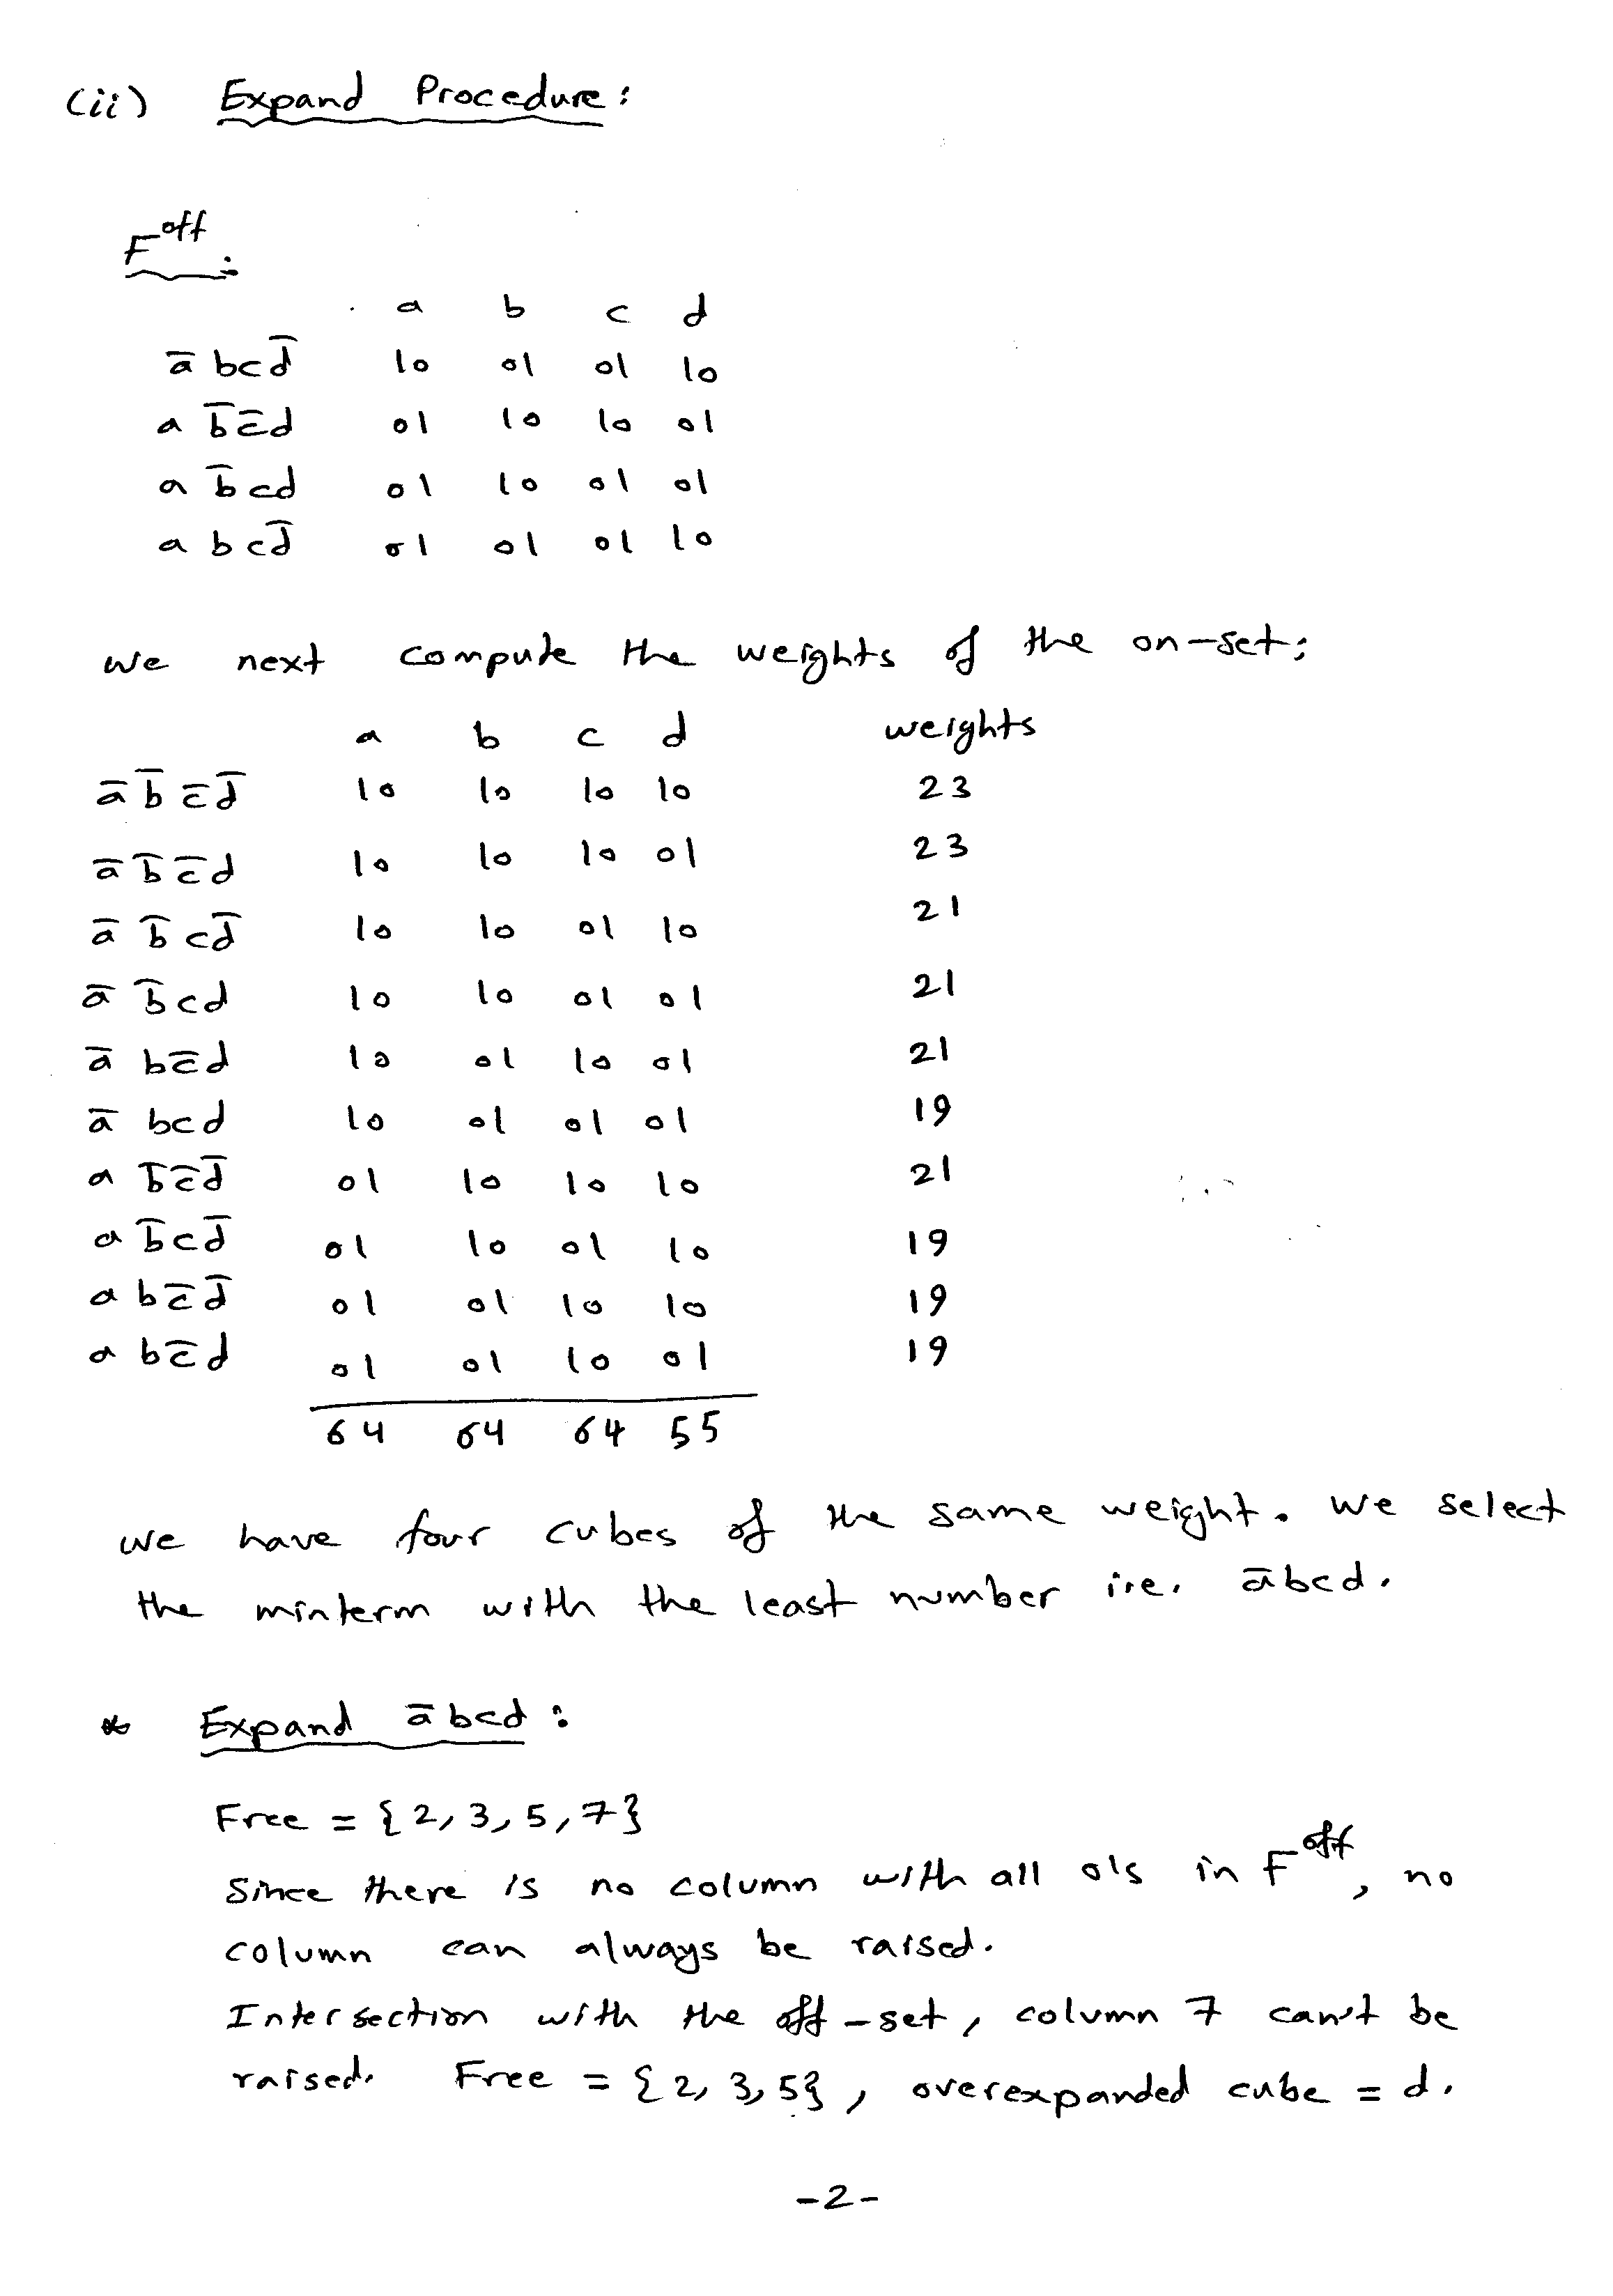 (ii) Expand Procedure:
F^off:
a b c d
a̅ b c d̅ 10 01 01 10
a b̅ c̅ d 01 10 10 01
a b̅ c d 01 10 01 01
a b c d̅ 01 01 01 10
we next compute the weights of the on-set:
a b c d weights
a̅ b̅ c̅ d̅ 10 10 10 10 23
a̅ b̅ c̅ d 10 10 10 01 23
a̅ b̅ c d̅ 10 10 01 10 21
a̅ b̅ c d 10 10 01 01 21
a̅ b c̅ d 10 01 10 01 21
a̅ b c d 10 01 01 01 19
a b̅ c̅ d̅ 01 10 10 10 21
a b̅ c d̅ 01 10 01 10 19
a b c̅ d̅ 01 01 10 10 19
a b c̅ d 01 01 10 01 19
64 64 64 55
we have four cubes of the same weight. we select
the minterm with the least number i.e. a̅bcd.
* Expand a̅bcd:
Free = {2, 3, 5, 7}
Since there is no column with all 0's in F^off, no
column can always be raised.
Intersection with the off-set, column 7 can't be
raised. Free = {2, 3, 5}, overexpanded cube = d.
-2-